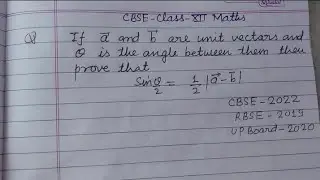 CBSE-Class-XII Maths
Q If a⃗ and b⃗ are unit vectors and
θ is the angle between them then
prove that
sin θ/2 = 1/2 |a⃗ - b⃗|
CBSE-2022
RBSE-2019
UP Board-2020